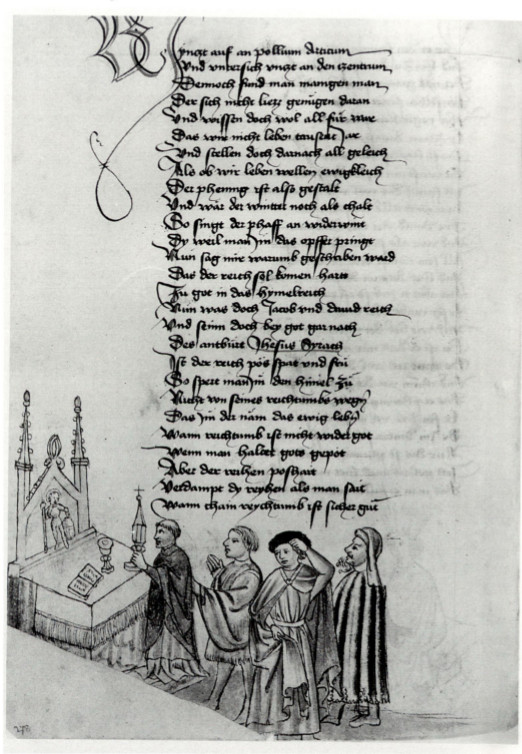 Vntzt auf an pollum Articum
Vnd vntersich vntzt an den Zentrum
Dennoch find man mangen man
Der sich nicht liesz genugen daran
Vnd wissen doch wol all für war
Das wir nicht leben tausent Jar
Vnd stellen doch darnach all geleich
Als ob wir leben wellen ewigkleich
Der phennig ist also gestalt
Vnd wär der winter noch als chalt
So singt der phaff an widerwint
Dy weil man Jm das opffer pringt
Nun sag mir warumb geschriben ward
Das der reich sol komen hart
Zu got in das hymelreich
Nun was doch Jacob vnd dauid reich
Vnd seinn doch bey got gar nach
Des antburt Jhesus Syrach
Ist der reich pös spat vnd frü
So spert man Jm den himel zü
Nicht von seines reichtumbs wegn
Das Jm der näm das ewig lebn
Wann reichtumb ist nicht wider got
Wenn man haltet gots gepot
Aber der reichen poshait
Verdampt dy reychen als man sait
Wann chain reychtumb ist sicher gut